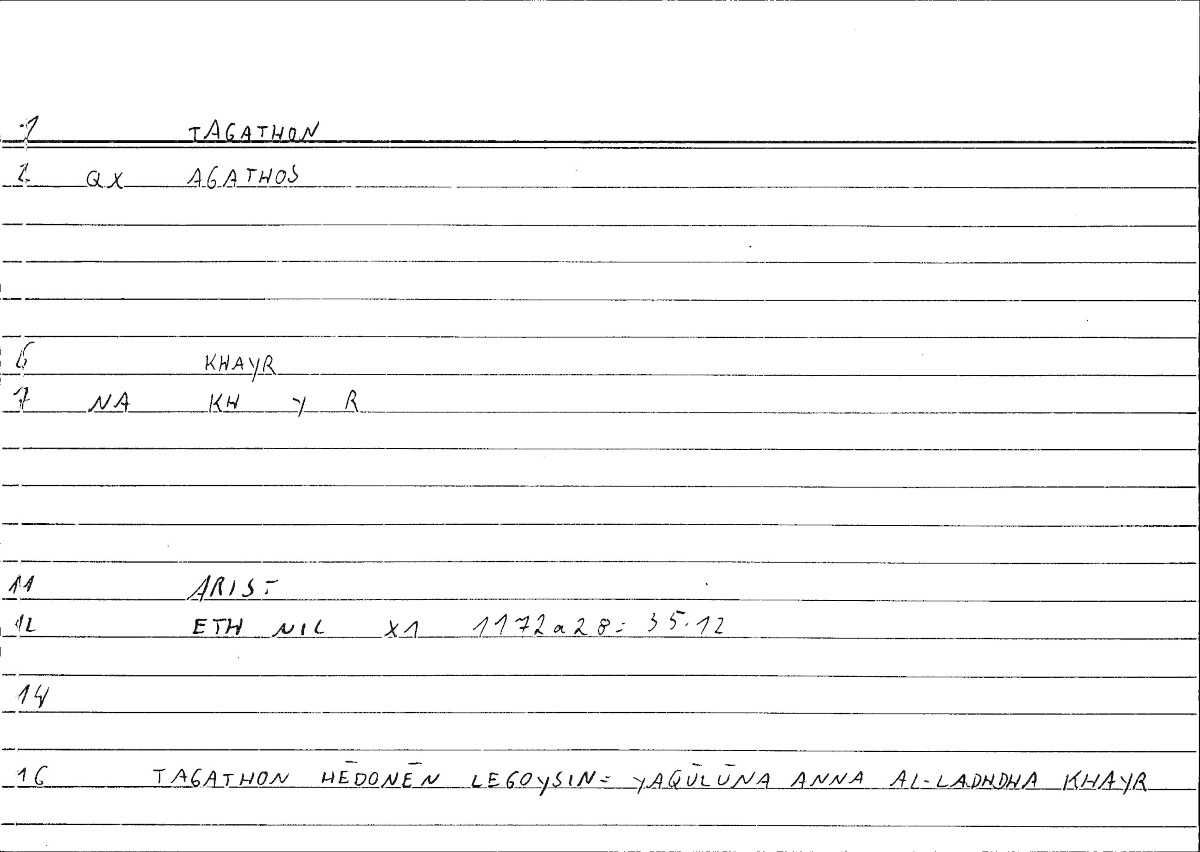 1 TAGATHON
2 QX AGATHOS
6 KHAYR
7 NA KH Y R
11 ARIST
12 ETH NIC X1 1172a28: 35.12
14
16 TAGATHON HĒDONĒN LEGOYSIN= YAQŪLŪNA ANNA AL-LADHDHA KHAYR